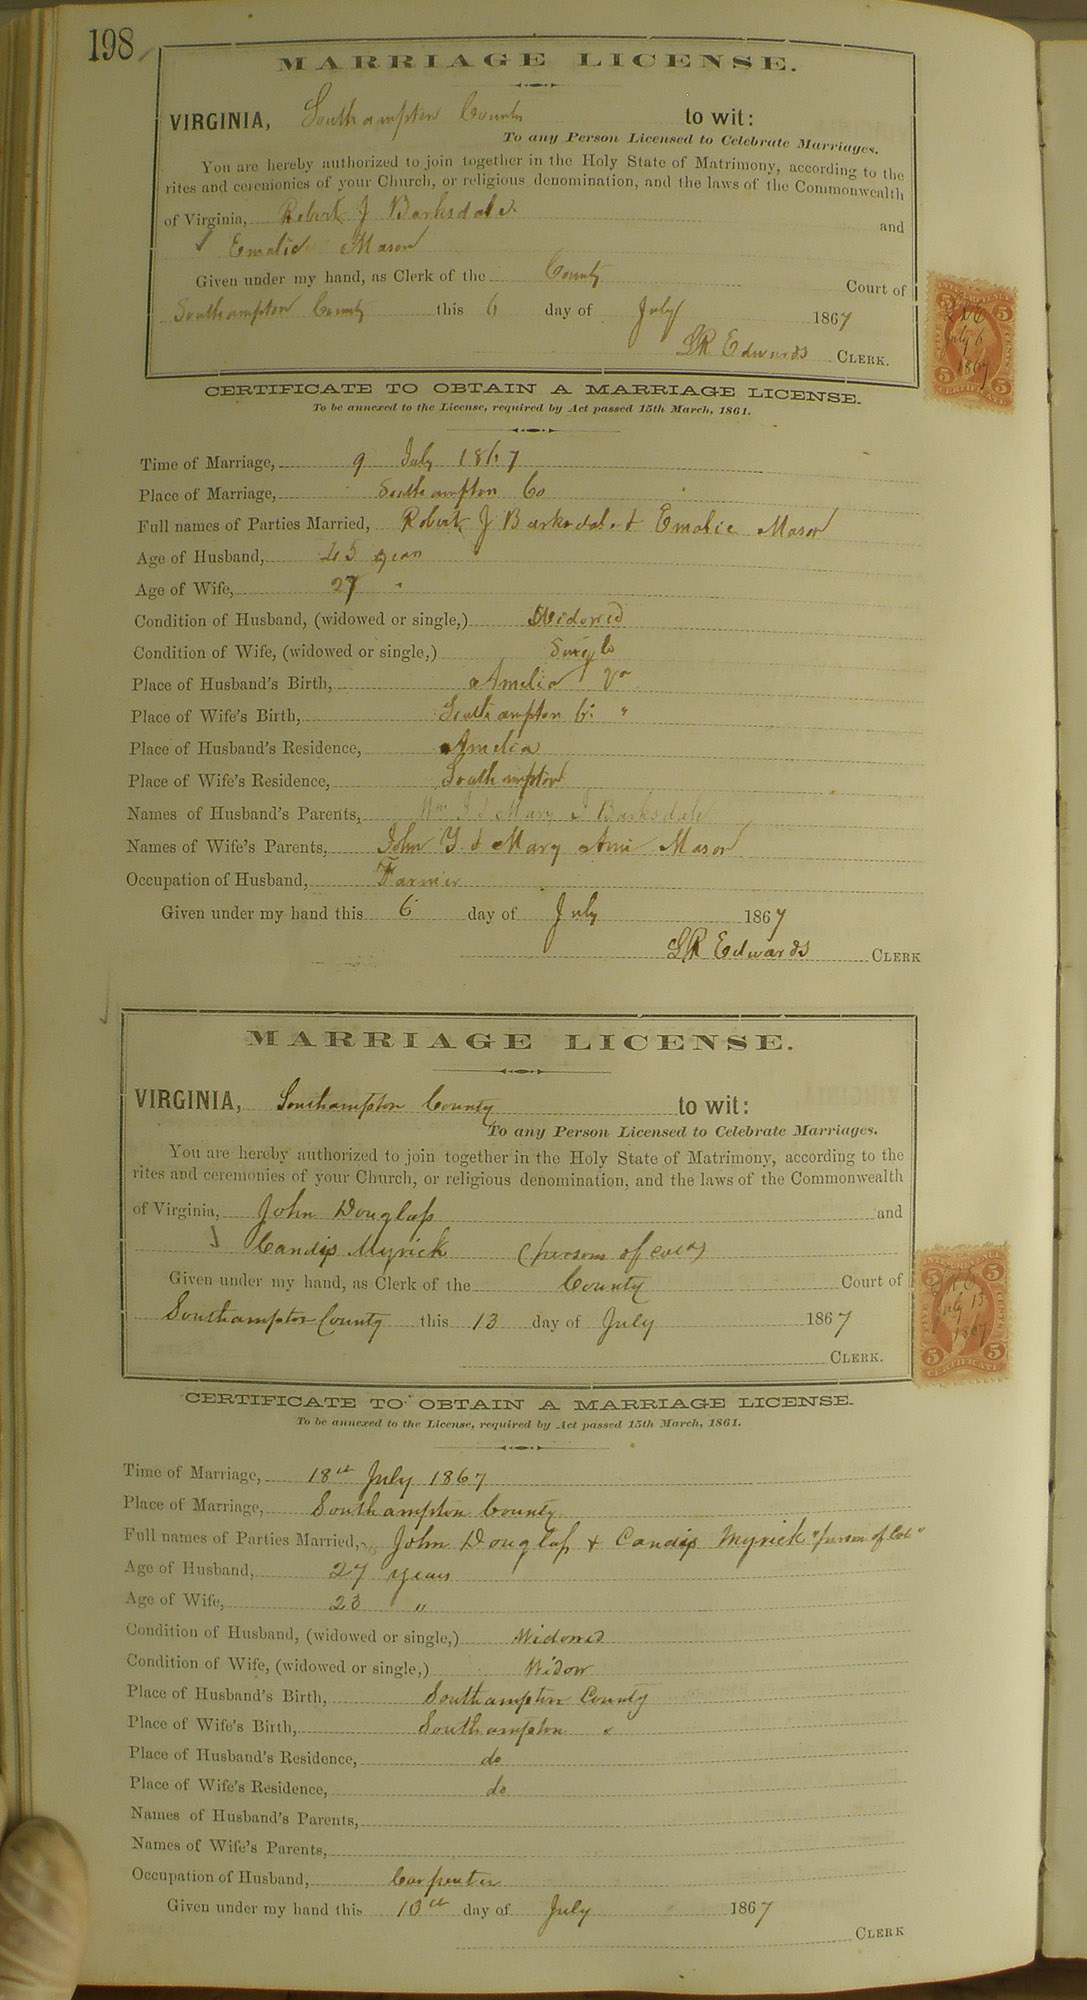 198
MARRIAGE LICENSE.
VIRGINIA, Southampton County to wit:
To any Person Licensed to Celebrate Marriages.
You are hereby authorized to join together in the Holy State of Matrimony, according to the
rites and ceremonies of your Church, or religious denomination, and the laws of the Commonwealth
of Virginia, Robert J Barksdale and
Emalie Mason
Given under my hand, as Clerk of the County Court of
Southampton County this 6 day of July 1867
LR Edwards CLERK.
5 5
LRE
July 6
1867
5 5
CERTIFICATE
CERTIFICATE TO OBTAIN A MARRIAGE LICENSE.
To be annexed to the License, required by Act passed 15th March, 1861.
Time of Marriage, 9 July 1867
Place of Marriage, Southampton Co
Full names of Parties Married, Robert J Barksdale & Emalie Mason
Age of Husband, 45 years
Age of Wife, 27 "
Condition of Husband, (widowed or single,) Widowed
Condition of Wife, (widowed or single,) Single
Place of Husband's Birth, Amelia Va
Place of Wife's Birth, Southampton Co "
Place of Husband's Residence, Amelia
Place of Wife's Residence, Southampton
Names of Husband's Parents, Wm J & Mary J Barksdale
Names of Wife's Parents, John Y. & Mary Ann Mason
Occupation of Husband, Farmer
Given under my hand this 6 day of July 1867
LR Edwards CLERK
MARRIAGE LICENSE.
VIRGINIA, Southampton County to wit:
To any Person Licensed to Celebrate Marriages.
You are hereby authorized to join together in the Holy State of Matrimony, according to the
rites and ceremonies of your Church, or religious denomination, and the laws of the Commonwealth
of Virginia, John Douglass and
Candis Myrick (persons of color)
Given under my hand, as Clerk of the County Court of
Southampton County this 13 day of July 1867
CLERK.
5 5
LRE
July 13
1867
5 5
CERTIFICATE
CERTIFICATE TO OBTAIN A MARRIAGE LICENSE.
To be annexed to the License, required by Act passed 15th March, 1861.
Time of Marriage, 18th July 1867
Place of Marriage, Southampton County
Full names of Parties Married, John Douglass & Candis Myrick "person of Col"
Age of Husband, 27 years
Age of Wife, 23 "
Condition of Husband, (widowed or single,) Widowed
Condition of Wife, (widowed or single,) Widow
Place of Husband's Birth, Southampton County
Place of Wife's Birth, Southampton "
Place of Husband's Residence, do
Place of Wife's Residence, do
Names of Husband's Parents,
Names of Wife's Parents,
Occupation of Husband, Carpenter
Given under my hand this 13th day of July 1867
CLERK